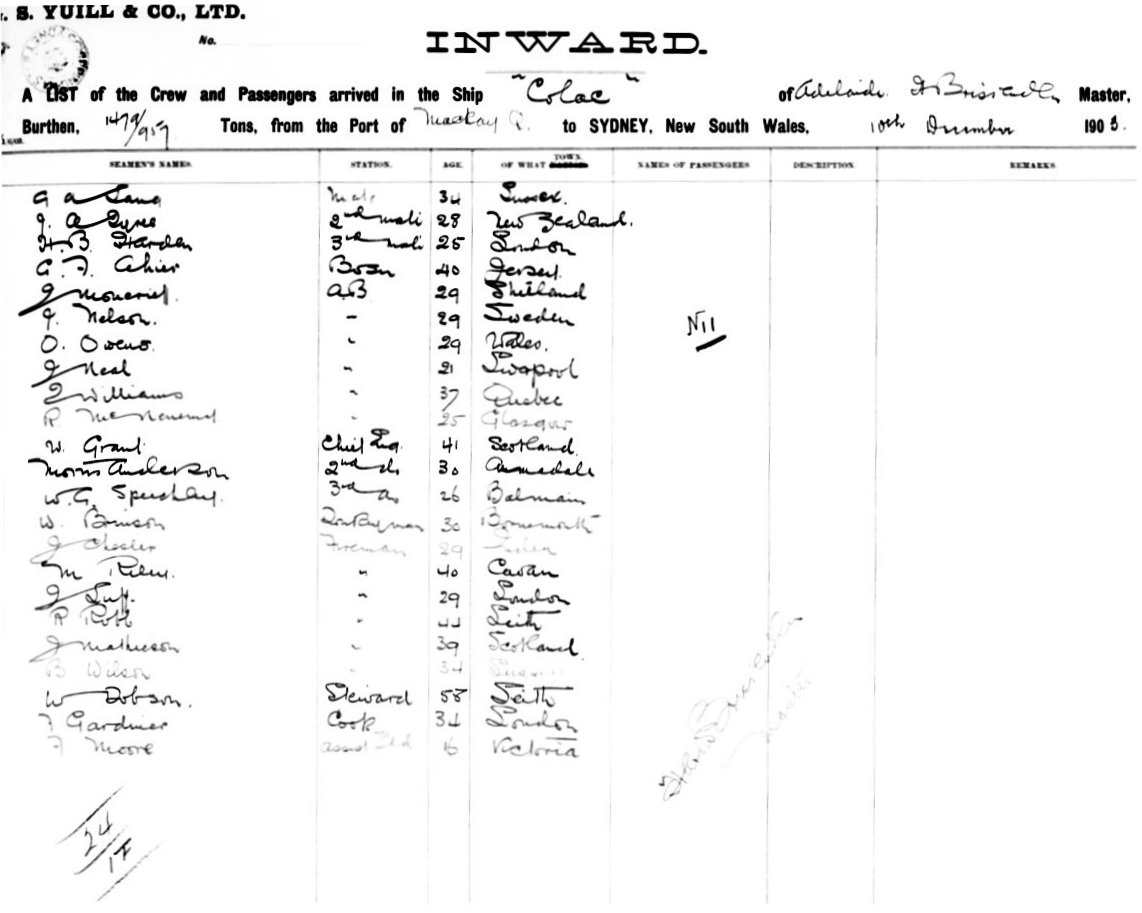 . S. YUILL & CO., LTD.
No.
INWARD.
A LIST of the Crew and Passengers arrived in the Ship "Colac" of Adelaide Master,
Burthen, 1479/959 Tons, from the Port of Mackay R. to SYDNEY, New South Wales, 10th December 1903.
SEAMEN'S NAMES. STATION. AGE OF WHAT TOWN. NAMES OF PASSENGERS DESCRIPTION. REMARKS.
Mate 34 Sussex.
2nd mate 28 New Zealand.
H. B. Harden 3rd mate 25 London
Ahier Bosn 40 Jersey.
J Moncrief. A.B 29 Shetland
J. Nelson. " 29 Sweden
Nil
O. Owens. " 29 Wales.
J Neal " 21 Liverpool
Williams " 37 Quebec
R. " 25 Glasgow
W. Grant Chief Eng. 41 Scotland.
Morris Anderson 2nd do 30 Annandale
W. G. Speechley. 3rd do 26 Balmain
W. Brinson Donkeyman 30
J Chester Fireman 29
M Riley. " 40 Cavan
J Luff. " 29 London
R Robb " 44 Leith
J Mathieson " 39 Scotland.
B Wilson " 34
W Dobson. Steward 58 Leith
F Gardiner Cook 34 London
F Moore assist Std 16 Victoria
Master
24/17